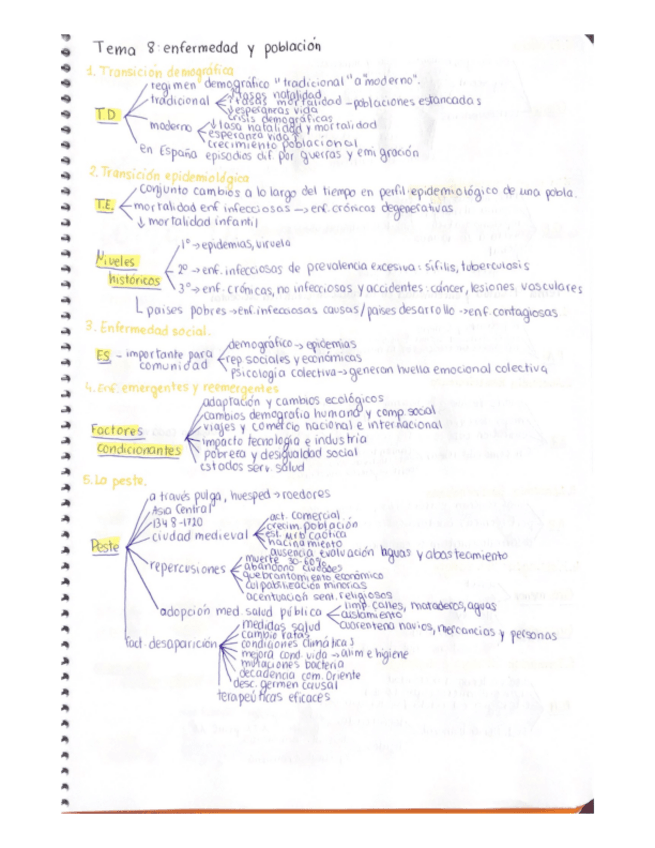 Tema 8: enfermedad y población
1. Transición demográfica
régimen demográfico "tradicional" a "moderno".
tradicional
tasas natalidad
tasas mortalidad - poblaciones estancadas
↓ esperanzas vida
crisis demográficas
TD
moderno
↓ tasa natalidad y mortalidad
esperanza vida ↑
crecimiento poblacional
en España episodios dif. por guerras y emigración
2. Transición epidemiológica
conjunto cambios a lo largo del tiempo en perfil epidemiológico de una pobla.
T.E.
mortalidad enf infecciosas → enf. crónicas degenerativas
↓ mortalidad infantil
Niveles
históricos
1º → epidemias, viruela
2º → enf. infecciosas de prevalencia excesiva: sífilis, tuberculosis
3º → enf. crónicas, no infecciosas y accidentes: cáncer, lesiones vasculares
países pobres → enf. infecciosas causas / países desarrollo → enf. contagiosas
3. Enfermedad social.
ES - importante para
comunidad
demográfico → epidemias
rep sociales y económicas
Psicología colectiva → generan huella emocional colectiva
4. Enf. emergentes y reemergentes
Factores
condicionantes
adaptación y cambios ecológicos
cambios demografia humana y comp. social
viajes y comercio nacional e internacional
impacto tecnología e industria
pobreza y desigualdad social
Estados serv. salud
5. La peste.
Peste
a través pulga, huesped → roedores
Asia Central
1348-1720
ciudad medieval
act. comercial
crecim. población
est. urb caótica
hacinamiento
ausencia evaluación aguas y abastecimiento
repercusiones
muerte 30-60%
abandono ciudades
quebrantamiento económico
culpabilización minorias
acentuación sent. religiosos
adopción med. salud pública
limp. calles, mataderos, aguas
aislamiento
cuarentena navios, mercancias y personas
fact. desaparición
medidas salud
cambio ratas
condiciones climáticas
mejora cond. vida → alim e higiene
mutaciones bacteria
decadencia com. Oriente
desc. germen causal
terapeúticas eficaces